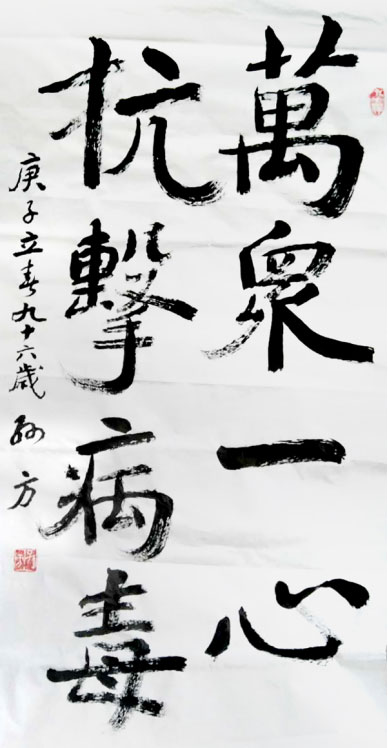 萬眾一心
抗擊病毒
庚子立春九十六歲孫方